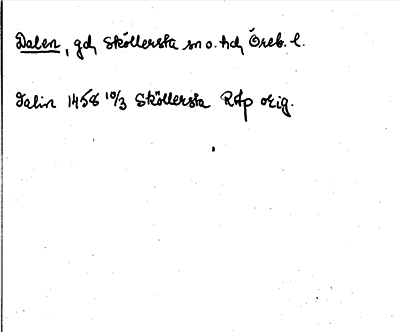 Dalen, gd, Sköllersta sn o. hd, Öreb. l.
Dalin 1458 10/3 Sköllersta RAp orig.